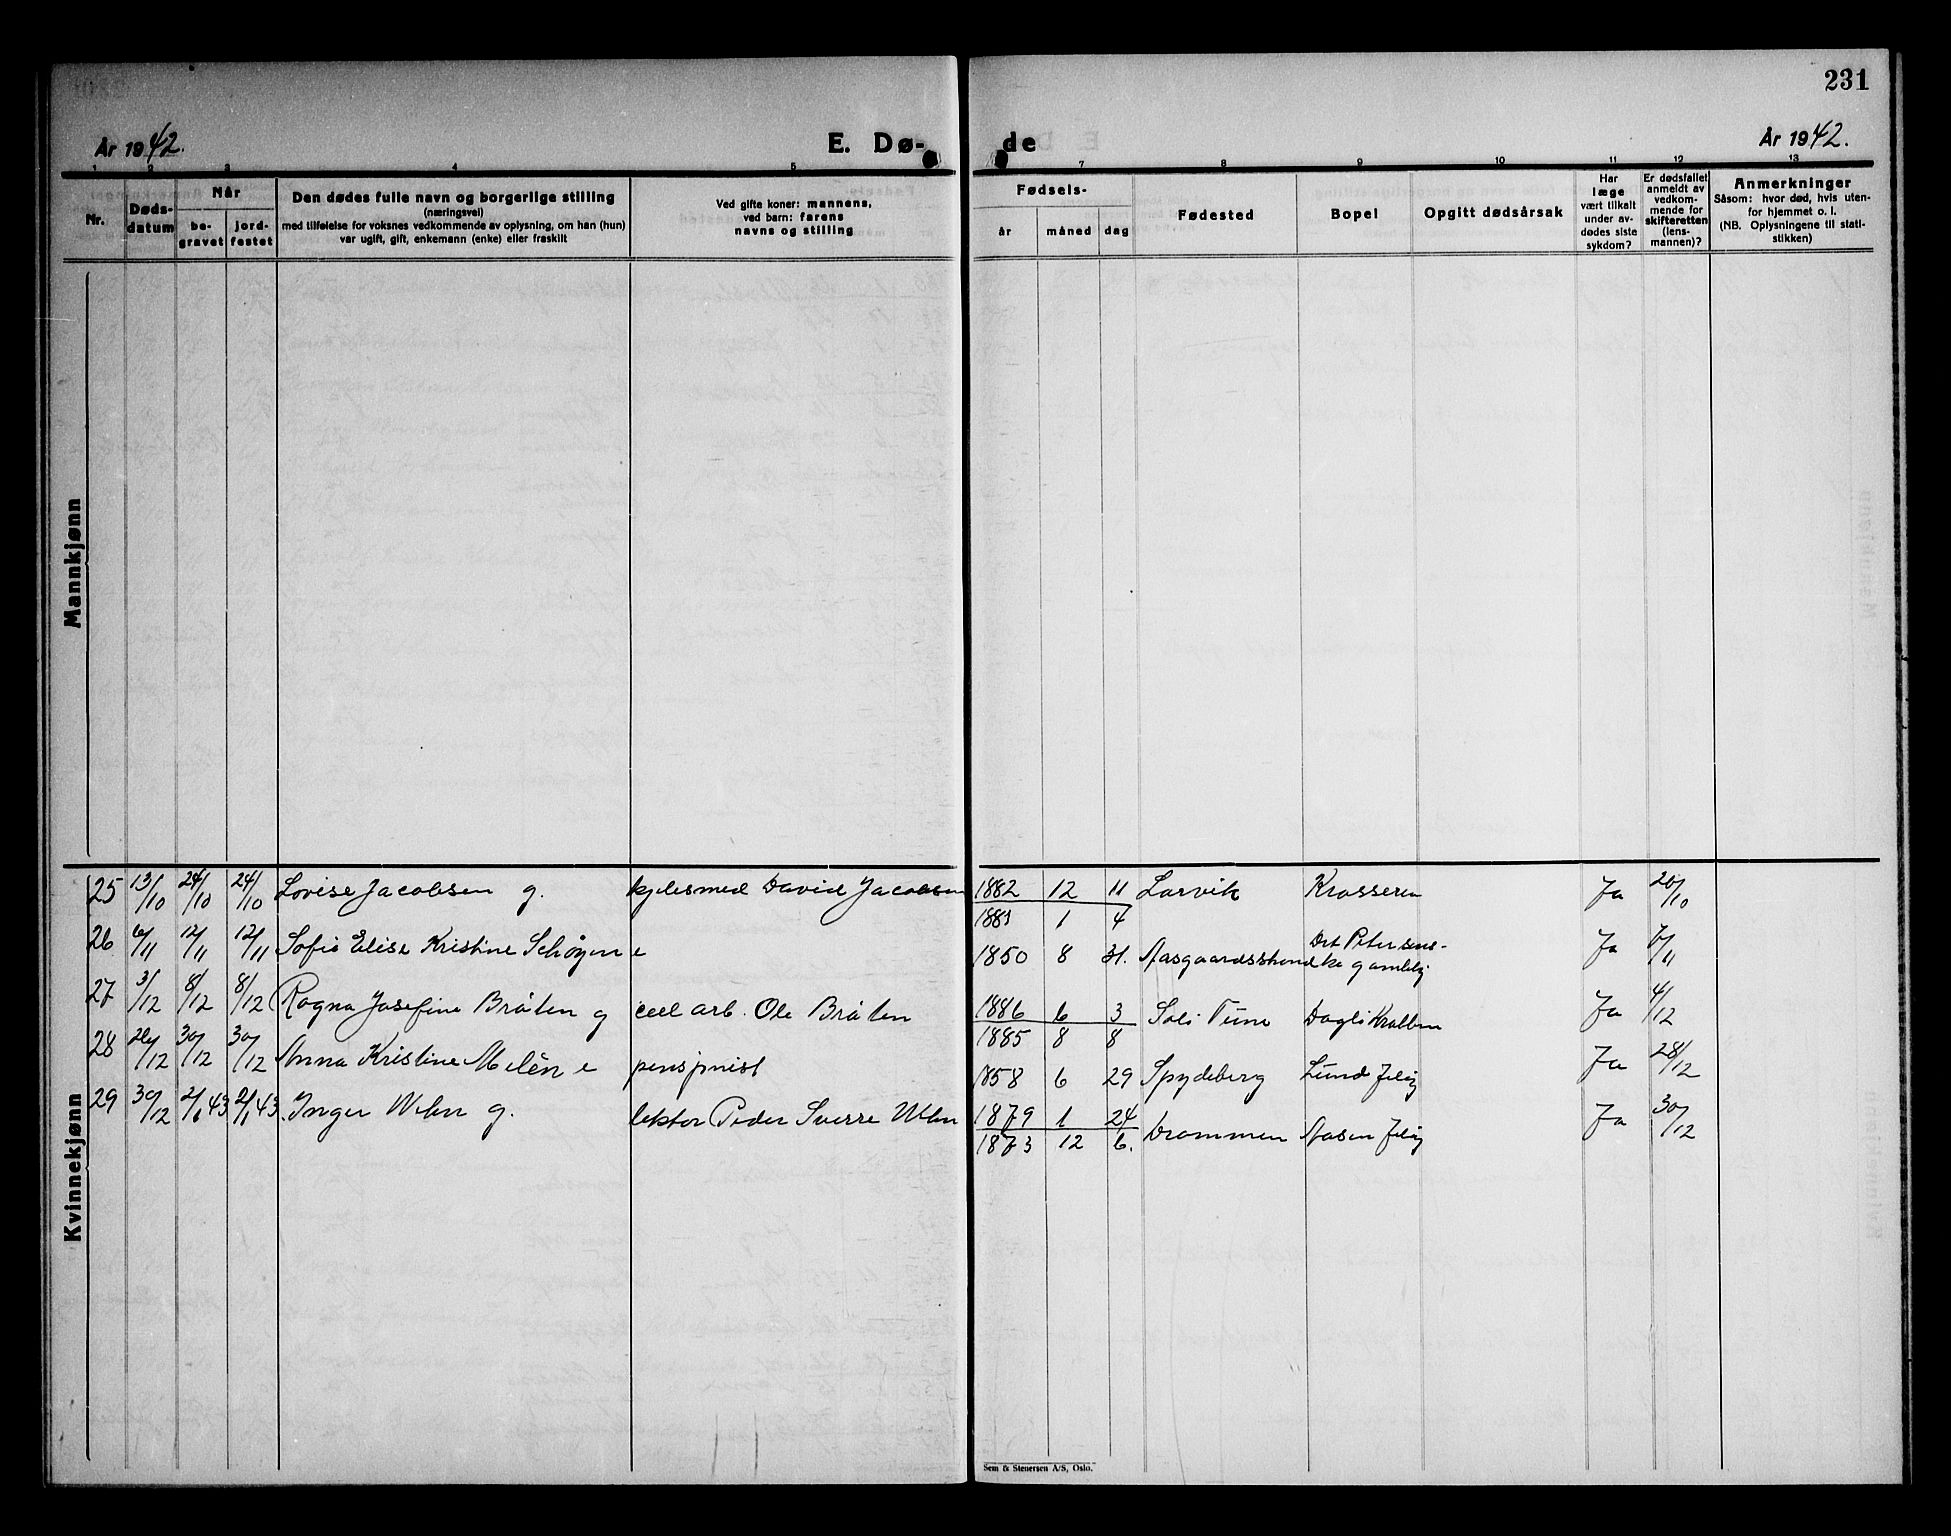 231
År 1942.
E. Dø-
de
År 1942.
1 2 3 4 5 7 8 9 10 11 12 13
Nr.
Døds-
datum
Når
be-
gravet
jord-
festet
Den dødes fulle navn og borgerlige stilling
(næringsvei)
med tilføielse for voksnes vedkommende av oplysning, om han (hun)
var ugift, gift, enkemann (enke) eller fraskilt
Ved gifte koner: mannens,
ved barn: farens
navns og stilling
Fødsels-
år
måned
dag
Fødested
Bopel
Opgitt dødsårsak
Har
læge
vært tilkalt
under av-
dødes siste
sykdom?
Er dødsfallet
anmeldt av
vedkom-
mende for
skifteretten
(lens-
mannen)?
Anmerkninger
Såsom: hvor død, hvis uten-
for hjemmet o. l.
(NB. Oplysningene til stati-
stikken)
Mannkjønn
Kvinnekjønn
25 13/10 24/10 24/10 Lovise Jacobsen g. kjelesmed David Jacobsen 1882 12 11 Larvik Krosseren Ja 20/10
1881 1 4
26 6/11 12/11 12/11 Sofie Elise Kristine Schøyen e 1850 8 31. Aasgaardsstrand Det Petersens-
ke gamlehj Ja 7/11
27 3/12 8/12 8/12 Ragna Josefine Bråten g cell arb. Ole Bråten 1886 6 3 Soli Tune Dagli Krabben Ja 4/12
1885 8 8
28 26/12 30/12 30/12 Anna Kristine Melén e pensjonist 1858 6 29 Spydeberg Lund Jeløy Ja 28/12
29 30/12 2/1 43 2/1 43. Inger Wlen g. lektor Peder Sverre Wlen 1879 1 24 Drammen Aasen Jeløy Ja 30/12
1873 12 6.
Sem & Stenersen A/S, Oslo.